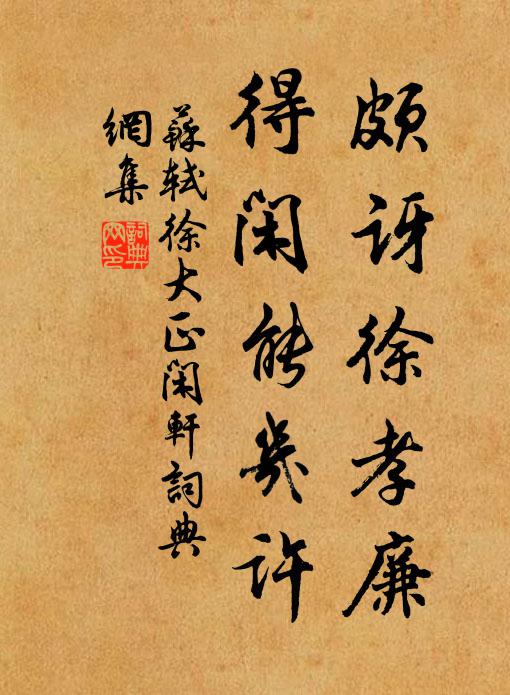 頗訝徐孝廉
得閑能幾許
蘇軾徐大正閑軒詞典
網集
詞典
网印